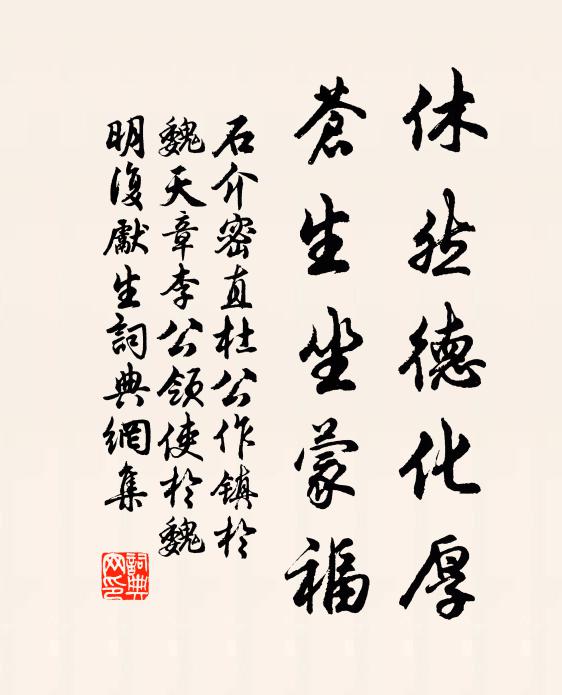 休然德化厚
蒼生坐蒙福
石介密直杜公作鎮於
魏天章李公領使於魏
明復獻生詞典網集
詞典
网印